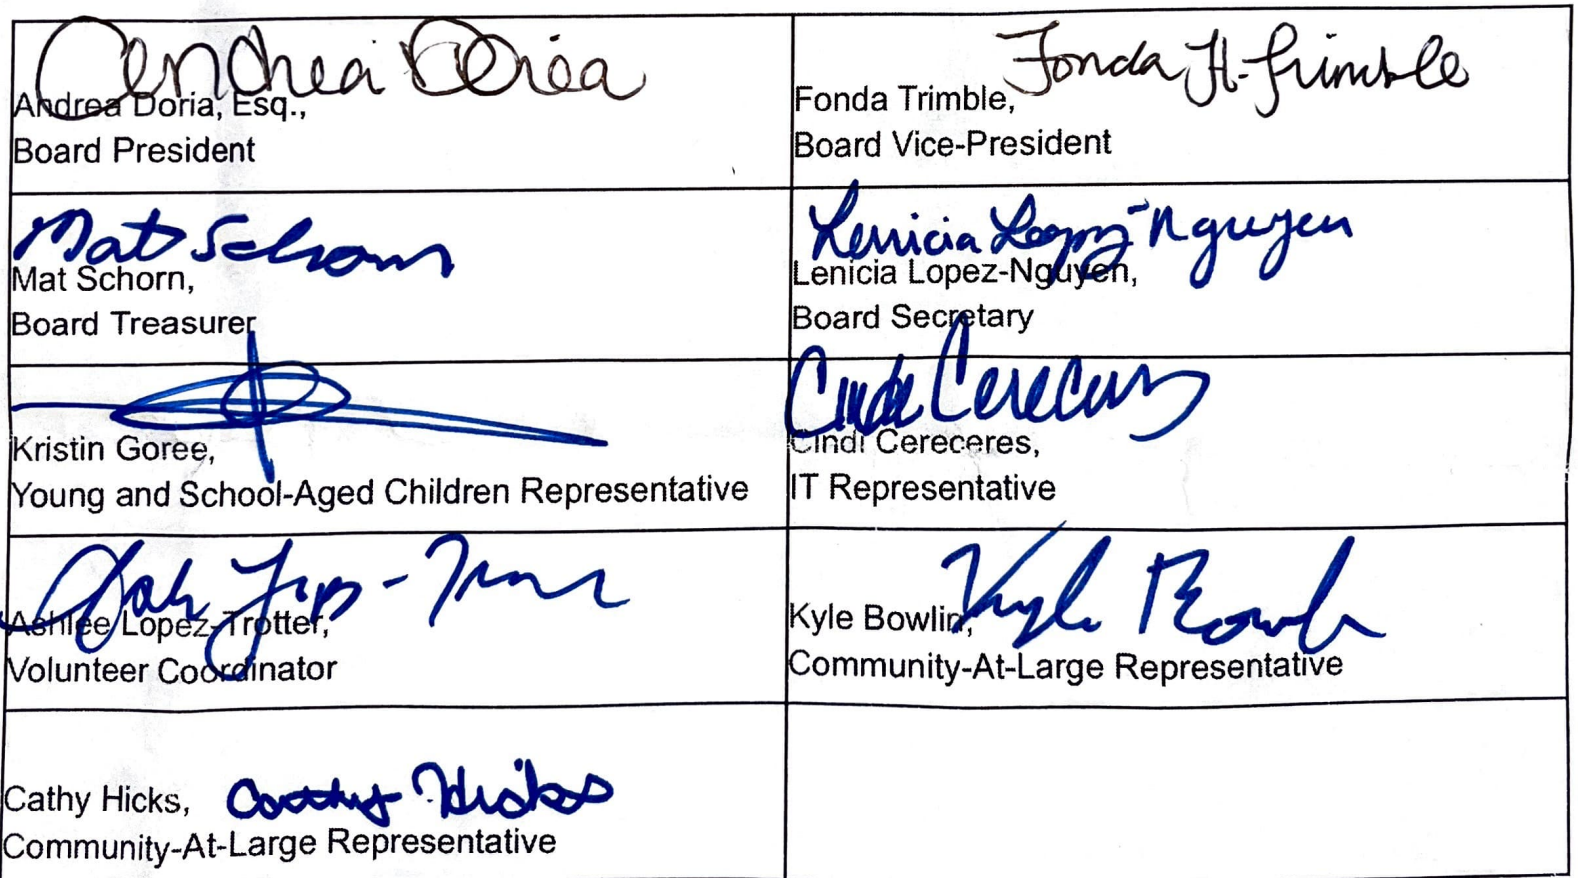 Andrea Doria
Andrea Doria, Esq.,
Board President
Fonda H. Trimble
Fonda Trimble,
Board Vice-President
Mat Schorn
Mat Schorn,
Board Treasurer
Lenicia Lopez-Nguyen
Lenicia Lopez-Nguyen,
Board Secretary
Kristin Goree,
Young and School-Aged Children Representative
Cindi Cereceres
Cindi Cereceres,
IT Representative
Ashlee Lopez-Trotter,
Volunteer Coordinator
Kyle Bowlin
Kyle Bowlin,
Community-At-Large Representative
Cathy Hicks, Cathy Hicks
Community-At-Large Representative